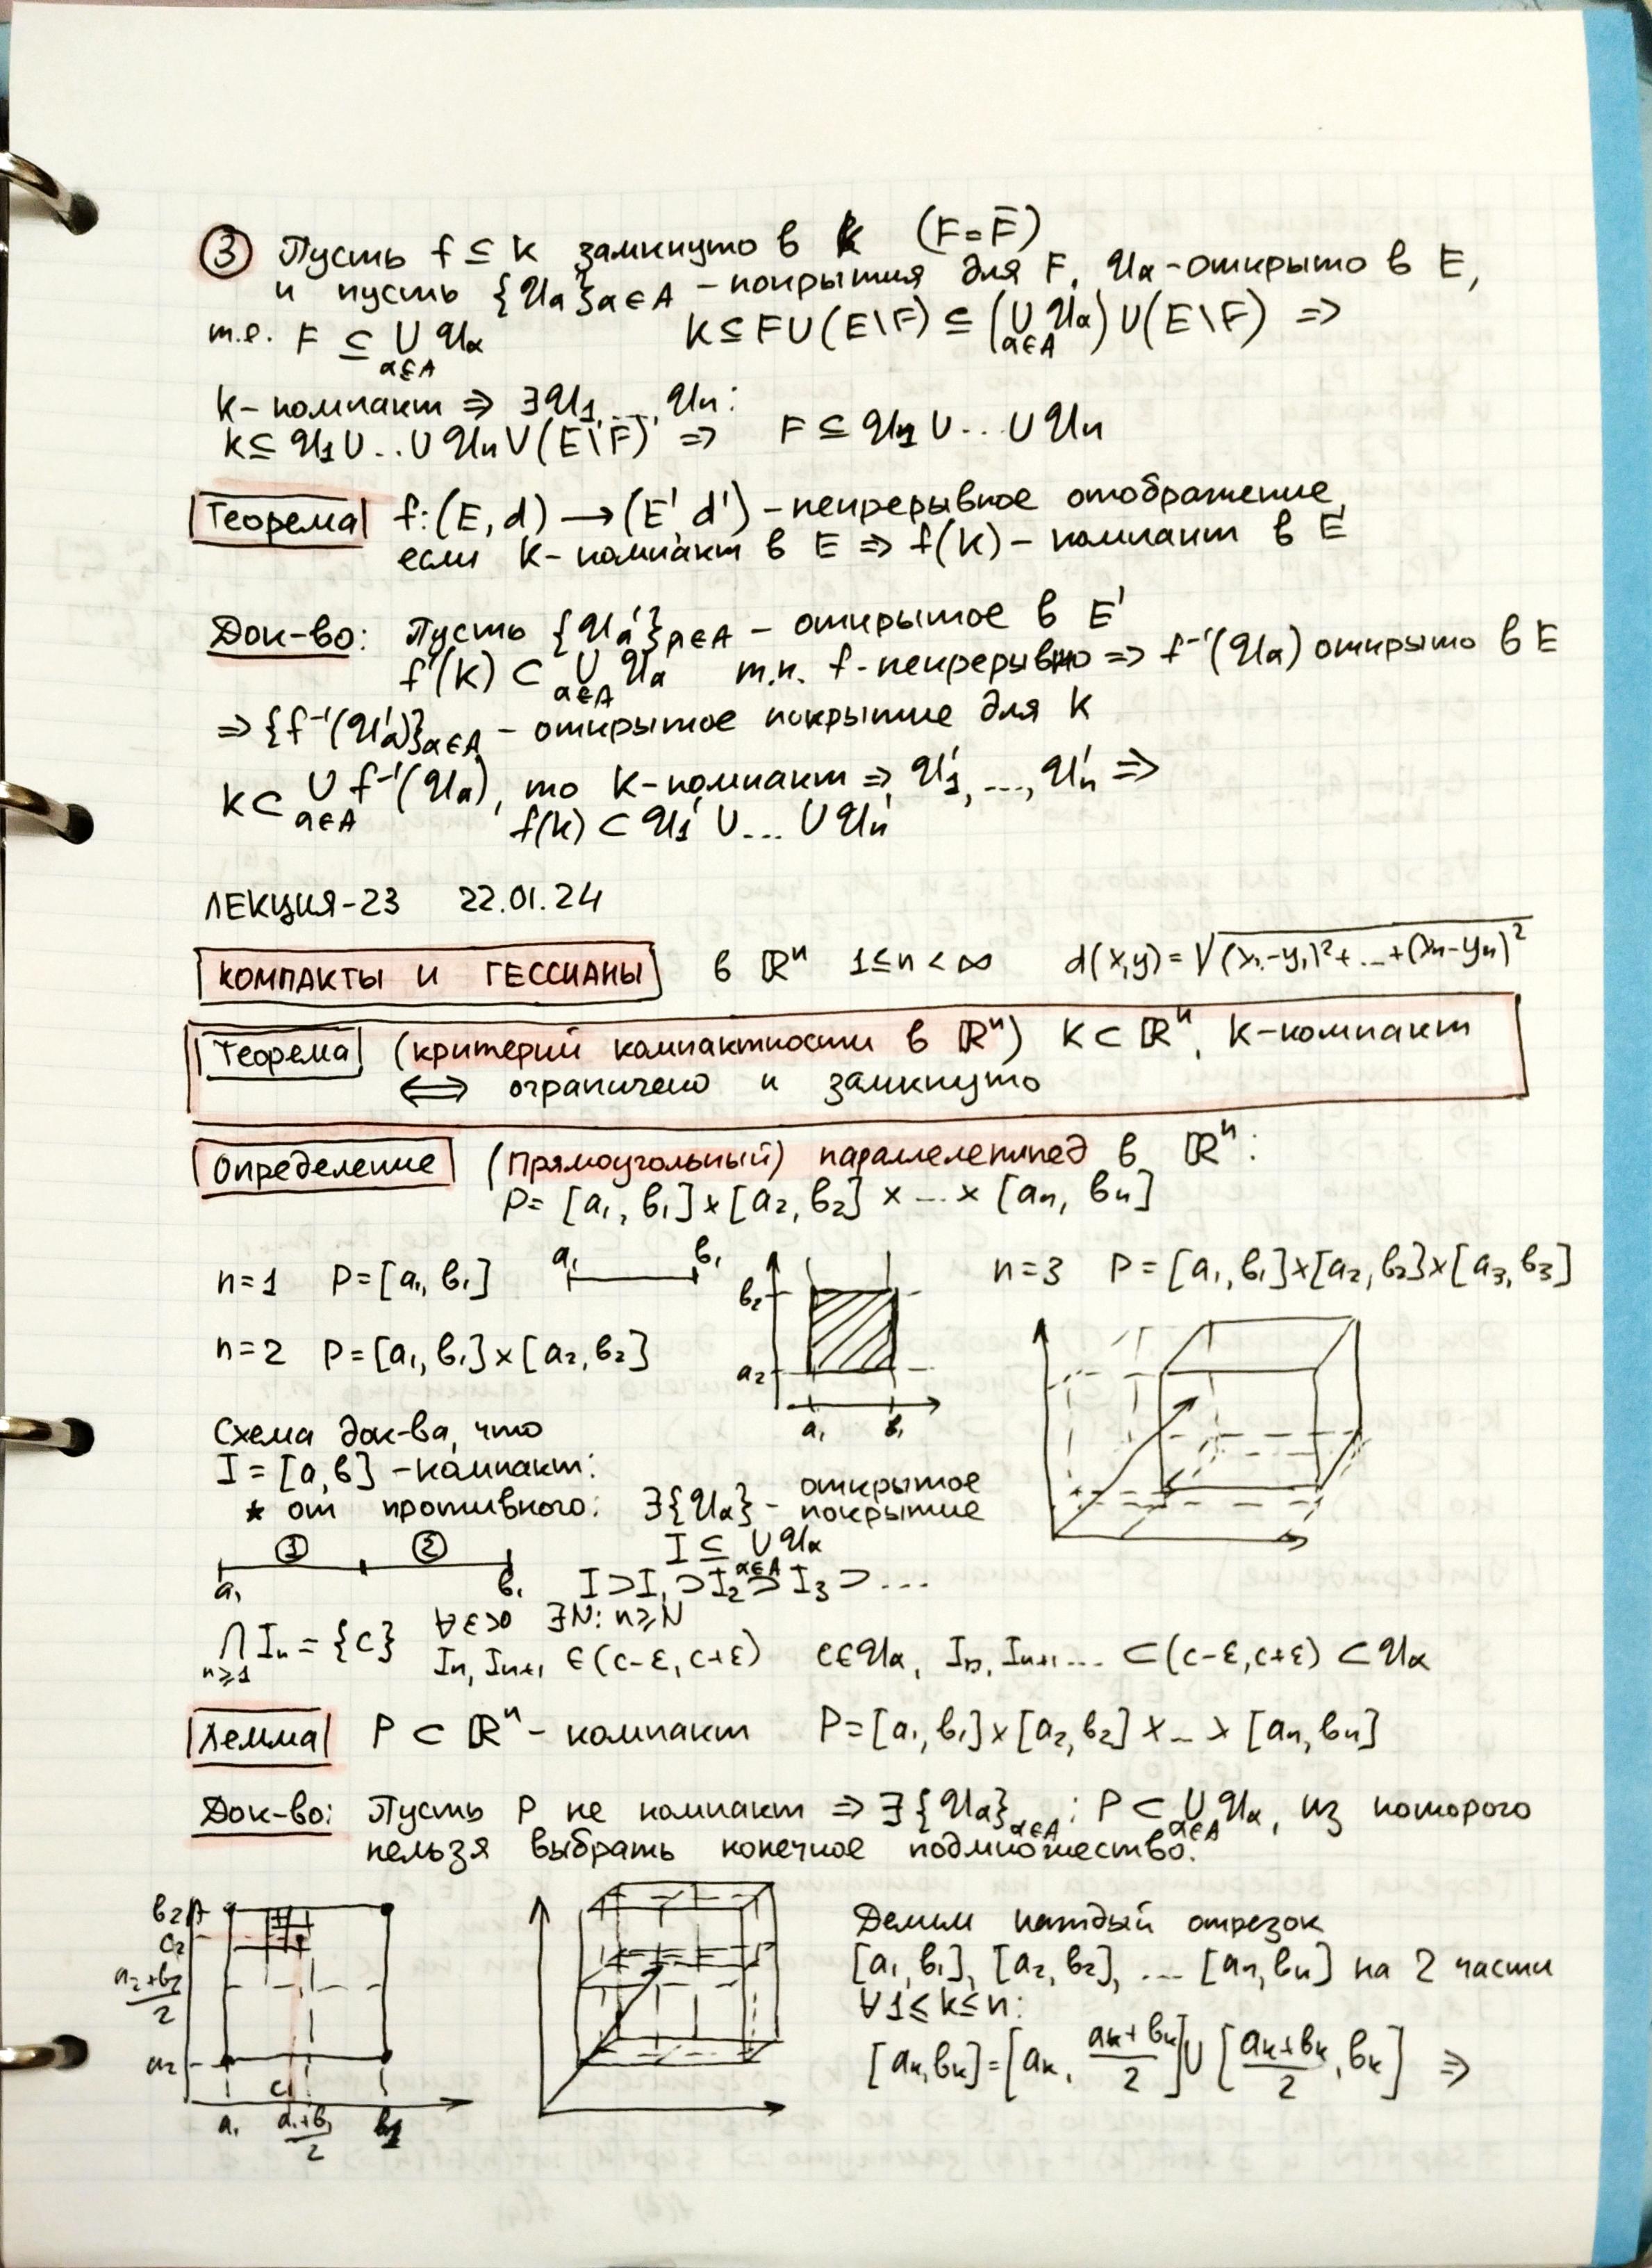 ③ Пусть f ⊆ K замкнуто в K (F = F̄)
и пусть {𝒰α}α∈A – покрытия для F, 𝒰α – открыто в E,
т.е. F ⊆ ∪α∈A 𝒰α K ⊆ F∪(E\F) ⊆ (∪α∈A 𝒰α)∪(E\F) ⇒
K – компакт ⇒ ∃𝒰1, ..., 𝒰n:
K ⊆ 𝒰1 ∪ ... ∪ 𝒰n ∪ (E\F) ⇒ F ⊆ 𝒰1 ∪ ... ∪ 𝒰n
Теорема f: (E, d) → (E' d') – непрерывное отображение,
если K – компакт в E ⇒ f(K) – компакт в E'
Док-во: Пусть {𝒰'α}α∈A – открытое в E'
f(K) ⊂ ∪α∈A 𝒰α т.к. f – непрерывно ⇒ f⁻¹(𝒰α) открыто в E
⇒ {f⁻¹(𝒰'α)}α∈A – открытое покрытие для K
K ⊂ ∪α∈A f⁻¹(𝒰α), то K – компакт ⇒ 𝒰'1, ..., 𝒰'n ⇒
f(K) ⊂ 𝒰'1 ∪ ... ∪ 𝒰'n
ЛЕКЦИЯ-23 22.01.24
КОМПАКТЫ И ГЕССИАНЫ в ℝⁿ 1≤n<∞ d(x,y) = √((x₁-y₁)²+...+(xn-yn)²)
Теорема (критерий компактности в ℝⁿ) K ⊂ ℝⁿ, K – компакт
⟺ ограничено и замкнуто
Определение (прямоугольный) параллелепипед в ℝⁿ:
P = [a₁, b₁] × [a₂, b₂] × ... × [an, bn]
n=1 P = [a₁, b₁] a₁ b₁
n=3 P = [a₁, b₁]×[a₂, b₂]×[a₃, b₃]
n=2 P = [a₁, b₁]×[a₂, b₂]
b₂
a₂
a₁ b₁
Схема док-ва, что
I = [a, b] – компакт:
* от противного: ∃{𝒰α} – открытое покрытие
I ⊆ ∪α∈A 𝒰α
① ②
a₁ b₁ I ⊃ I₁ ⊃ I₂ ⊃ I₃ ⊃ ...
∩n≥1 In = {c} ∀ε>0 ∃N: n≥N
In, In+1 ∈ (c-ε, c+ε) c∈𝒰α, In, In+1 ... ⊂ (c-ε, c+ε) ⊂ 𝒰α
Лемма P ⊂ ℝⁿ – компакт P = [a₁, b₁]×[a₂, b₂] × ... × [an, bn]
Док-во: Пусть P не компакт ⇒ ∃{𝒰α}α∈A : P ⊂ ∪α∈A 𝒰α, из которого
нельзя выбрать конечное подмножество.
b₂
c₂
(a₂+b₂)/2
a₂
c₁
a₁ (a₁+b₁)/2 b₁
Делим каждый отрезок
[a₁, b₁], [a₂, b₂], ... [an, bn] на 2 части
∀ 1≤k≤n:
[ak, bk] = [ak, (ak+bk)/2] ∪ [(ak+bk)/2, bk] ⇒